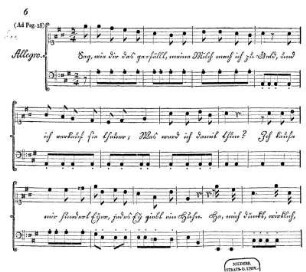 6
(Ad Pag. 28)
Allegro.
Sag, wie dir das gefällt, meine Milch mach ich zu Geld, und
ich verkauf sie theuer; Was werd ich damit thun? Ich kaufe
mir hundert Eyer, jedes Ey giebt ein Huhn. Ha, mich dünkt, wirklich,